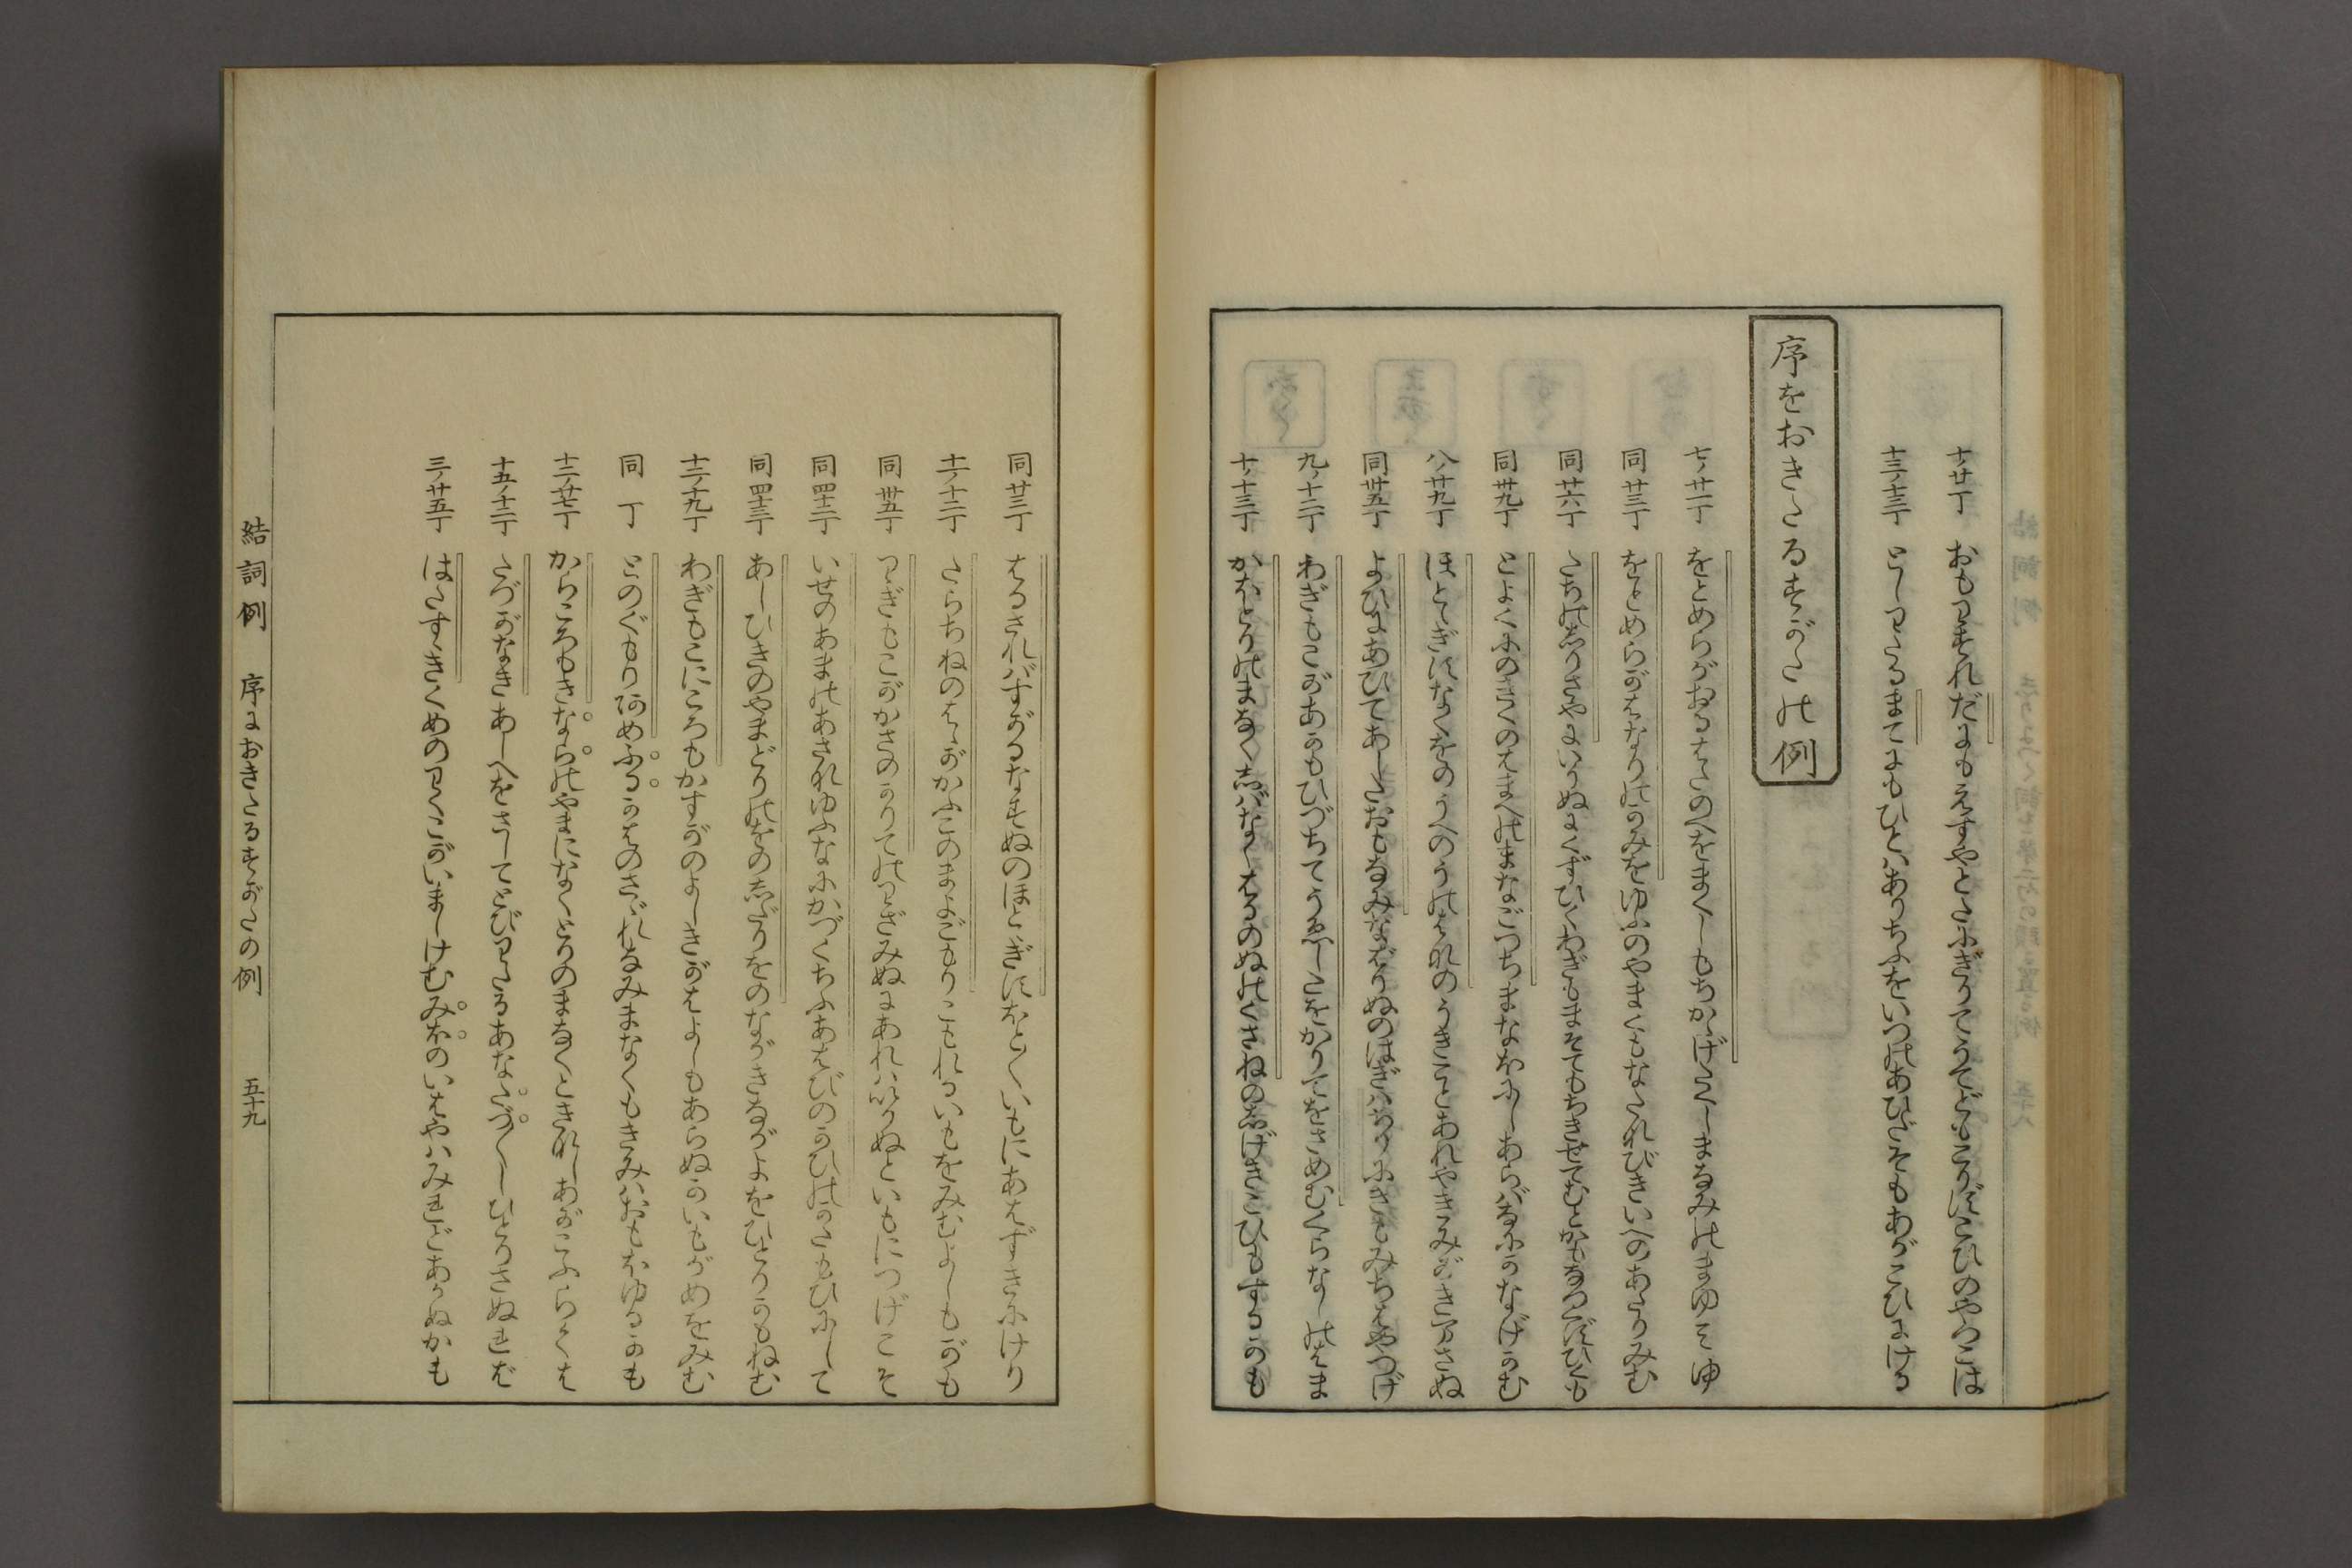 十ノ廿丁 おもわすれだにもえすやとたにぎりてうてどもこりずこひのやつこは
十三ノ十三丁 としわたるまてにもひとはありちふをいつのあひだそもあがこひにける
序をおきたるすがたの例
七ノ廿一丁 をとめらがおるはたのへをまくしもちかゝげたくしまなみのまゆミゆ
同廿三丁 をとめらがはなりのかみをゆふのやまくもなたなびきいへのあたりみむ
同廿六丁 たちのしりさやにいりぬにくずひくわぎもまそてもちきせてむとかもなつくずひくも
同卅九丁 とよくにのきくのはまへのまなごつちまなほにしあらばなにかなげかむ
八ノ廿九丁 ほとゝぎすなくをのうへのうのはなのうきことあれやきみがきまさぬ
同卅五丁 よひにあひてあしたおもなみなばりぬのはぎはちりにきもみちはやつげ
九ノ十二丁 わぎもこがあかもひづちてうゑしたをかりてをさめむくらなしのはま
十ノ十三丁 かほとりのまなくしばなくはるのぬのくさねのしげきこひもするかも
同廿三丁 はるさればすがるなすぬのほとゝぎすほとほといもにあはずきにけり
十一ノ十二丁 たらちねのはゝがかふこのまよごもりこもれるいもをみむよしもがも
同卅五丁 わぎもこがかさのかりてのわざみぬにあれはいりぬといもにつげこそ
同四十二丁 いせのあまのあさなゆふなにかづくちふあはびのかひのかたもひにして
同四十三丁 あしひきのやまどりのをのしだりをのながきながよをひとりかもねむ
十二ノ十九丁 わぎもこにころもかすがのよしきがはよしもあらぬかいもがめをみむ
同　丁 とのぐもりあめふるかはのさゞれなみまなくもきみはおもほゆるかも
十二ノ廿七丁 からころもきならのやまになくとりのまなくときなしあがこふらくは
十五ノ十二丁 たづがなきあしへをさしてとびわたるあなたづたづしひとりさぬれば
三ノ廿五丁 はたすゝきくめのわくこがいましけむみほのいはやハみれどあかぬかも
結詞例　序におきたるすがたの例　五十九